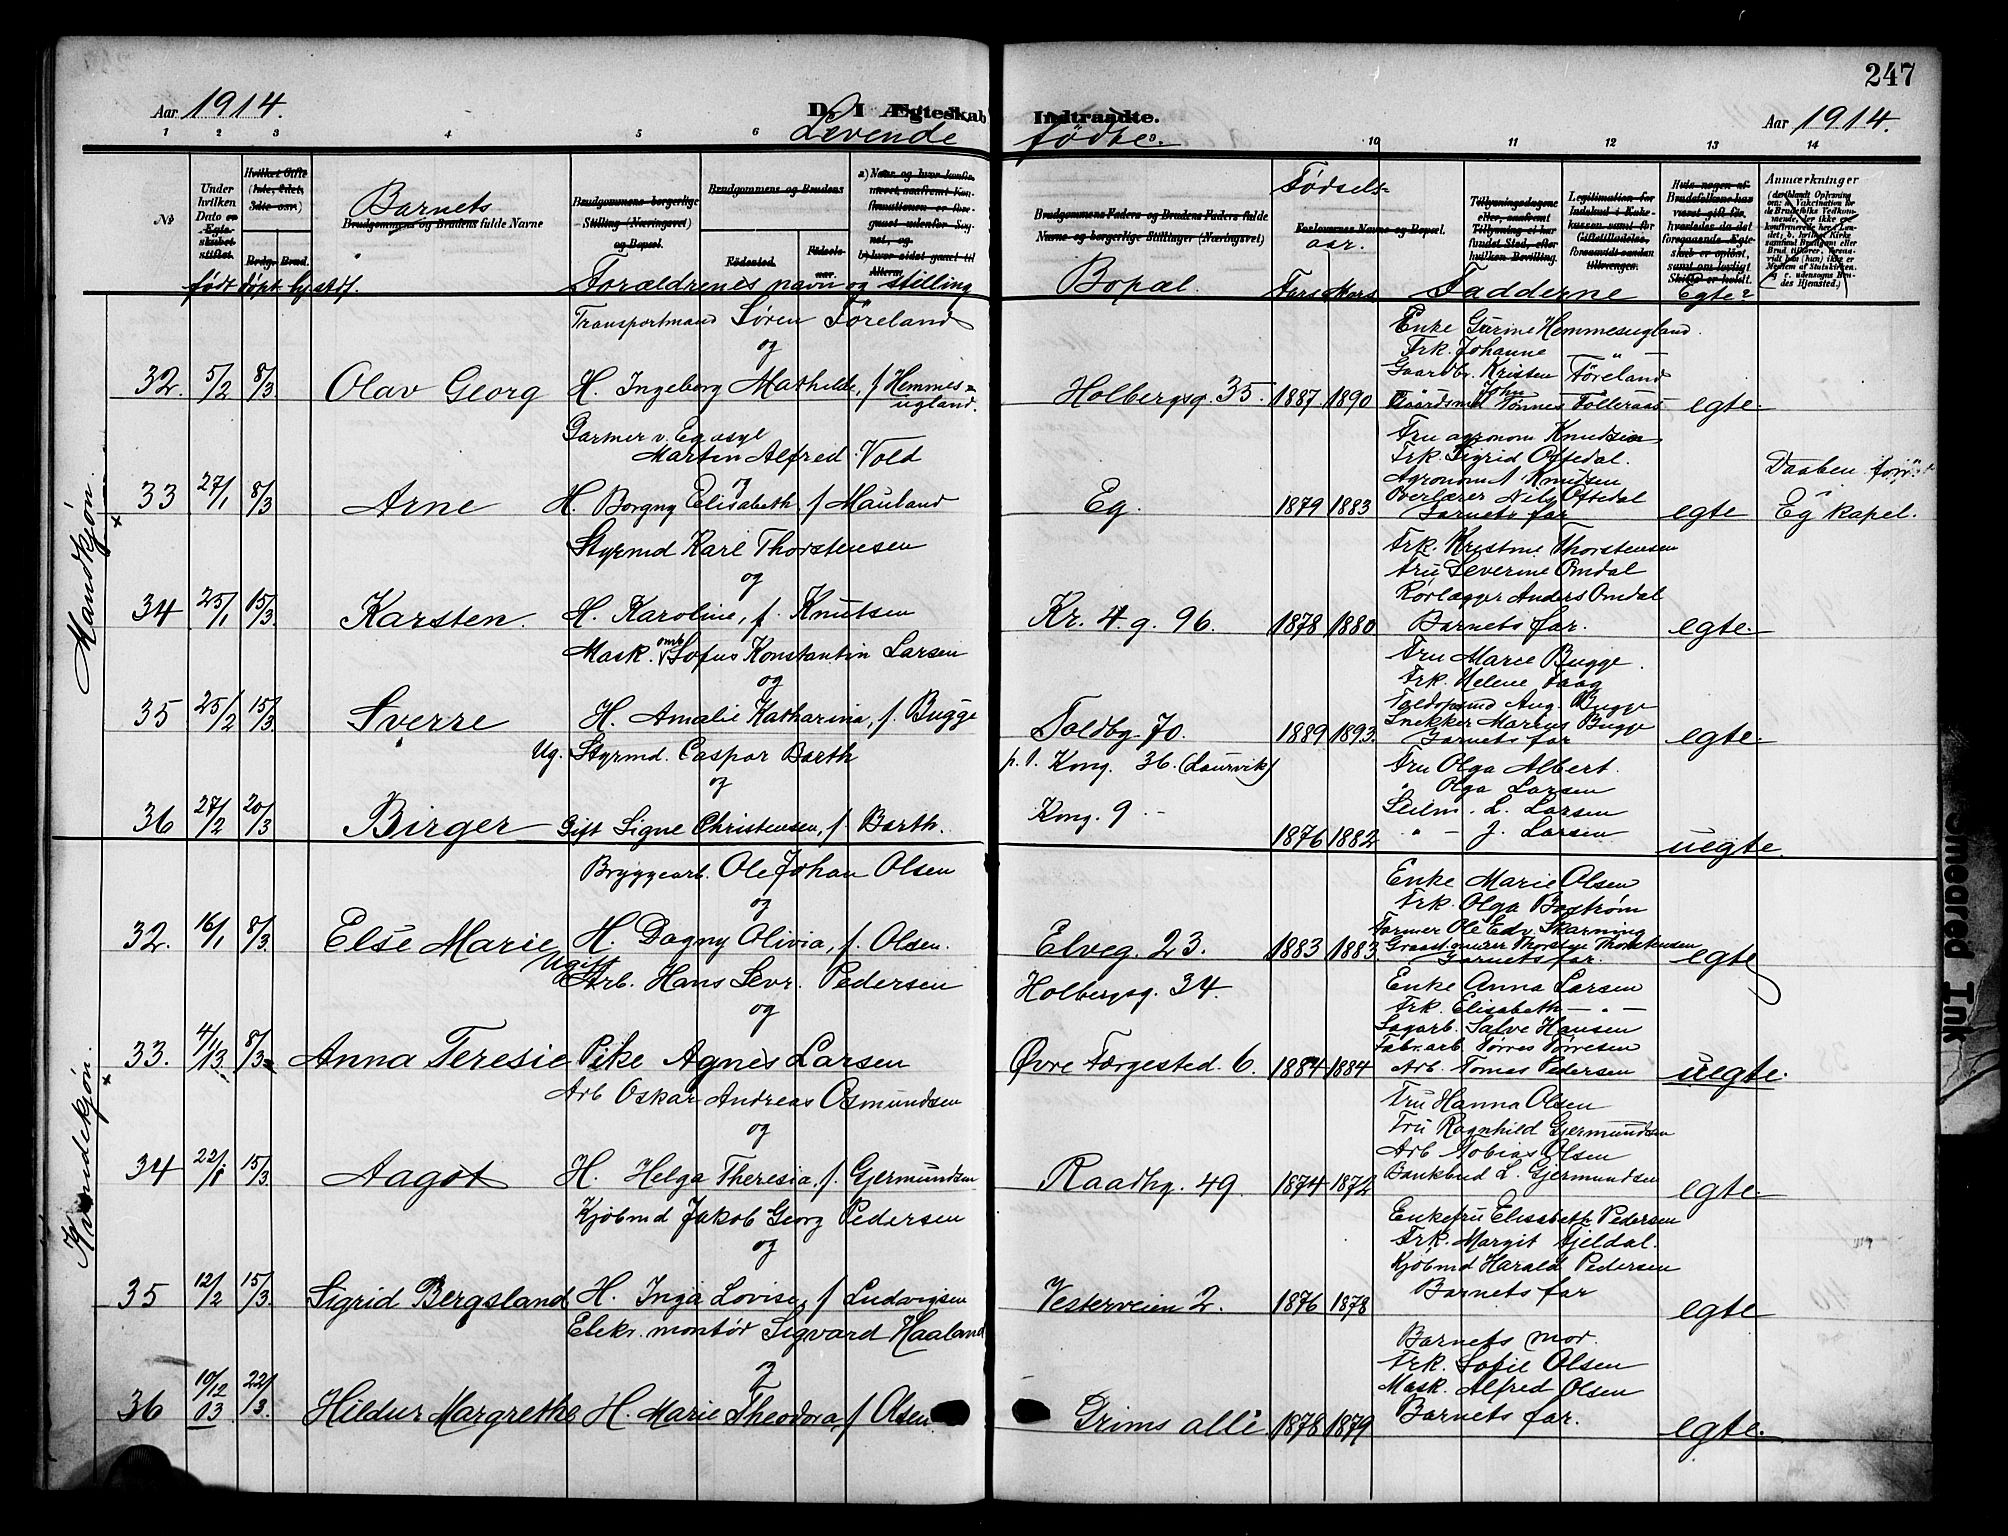 247
Aar 1914.
D. I Ægteskab Indtraadte.
Aar 1914.
Levende fødte.
1 2 3 4 5 6 8 10 11 12 13 14
No
Under hvilken Dato er Ægteskabet stiftet.
Hvilket Gifte (1ste, 2det, 3die osv.)
Brdg. Brud.
Barnets
Brudgommens og Brudens fulde Navne
Brudgommens borgerlige Stilling (Næringsvei) og Bopæl.
Brudgommens og Brudens
Fødested.
Fødselsaar.
Brudgommens Faders og Brudens Faders fulde Navne og borgerlige Stillinger (Næringsvei)
Fødselsaar.
Forlovernes Navne og Bopæl.
Anmærkninger
født døpt hjemdt.
Forældrenes navn og stilling
Bopæl.
Fars Mors
Fadderne
Egte?
Mandkjøn.
Transportmand Søren Föreland
og
32. 5/2 8/3 Olav Georg H. Ingeborg Mathilde, f Hemmesugland.
Holbergsg. 35. 1887. 1890
Enke Gurine Hemmesugland.
Frk. Johanne
Gaardbr. Kristen Föreland
Gaardsmd John Tønnes Følleraas
egte.
Garmer v. Eg asyl
Martin Alfred Vold
og
33 27/1 8/3 Arne H. Borgny Elisabeth f Mauland
Eg. 1879 1883
Fru agronom Knudsen
Frk. Sigrid Oftedal.
Agronom A Knudsen
Overlærer Nils Oftedal
Barnets far
egte
Daaben
i
Eg kapel.
Styrmd Karl Thorstensen
og
34 25/1 15/3 Karsten. H. Karoline, f. Knutsen
Kr. 4. g. 96. 1878 1880
Frk. Kristine Thorstensen
Fru Severine Omdal
Rørlægger Anders Omdal
Barnets far.
egte.
Mask. Sofus Konstantin Larsen
og
35 25/2 15/3. Sverre H. Amalie Katharina, f. Bugge
Toldbg. 70. 1889 1893.
Fru Marie Bugge.
Frk. Helene Faag
Toldopsmd Aug. Bugge
Snekker Marius Bugge
Barnets far
egte.
Ug. Styrmd. Caspar Barth
og
36 27/2 20/3 Birger Gift Signe Christensen, f. Barth.
p. t. Kong. 36. (Laurvik)
Kong. 9 -
1876 1882
Fru Olga Albert.
" Olga Larsen
Seilm. L. Larsen
" - J. Larsen
uegte.
Kvindekjøn.
Bryggearb. Ole Johan Olsen
og
32. 16/1 8/3. Else Marie H. Dagny Olivia, f. Olsen.
Elveg. 23. 1883 1883
Enke Marie Olsen
Frk. Olga Bostrøm
Former Ole Edv. Skarning
Graast.murer Thorstye Thorstensen
Barnets far.
egte
Ugift
Arb. Hans Sevr. Pedersen
og
Holbergsg. 34.
33. 4/1 13 8/3 Anna Teresie Pike Agnes Larsen
Øvre Færgested. 6. 1884 1884
Enke Anna Larsen
Frk. Elisabeth - " -
Sagarb. Salve Hansen
Fabr.arb Tørres Tørresen
Arb. Tomas Pedersen
uegte.
Arb Oskar Andreas Osmundsen
og
34 22/1 15/3. Aagot H. Helga Theresia, f. Gjermundsen
Raadhg. 49. 1874 1872
Fru Hanna Olsen
Fru Ragnhild Gjermundsen
Arb Tobias Olsen
Bankbud L. Gjermundsen
egte.
Kjöbmd Jakob Georg Pedersen
og
35 12/2 15/3. Sigrid Bergsland H. Inga Lovise, f Ludvigsen
Vesterveien 2. 1876 1878
Enkefru Elisabeth Pedersen
Frk. Margit Fjeldal.
Kjöbmd Harald Pedersen
Barnets far
egte
Elekr. montør Sigvard Haaland
og
36 10/12 03 22/3. Hildur Margrethe H. Marie Theodora, f Olsen
Grims allé 1878 1879
Barnets mor.
Frk. Sofie Olsen
Mask. Alfred Olsen
Barnets far.
egte.
Smeared Ink